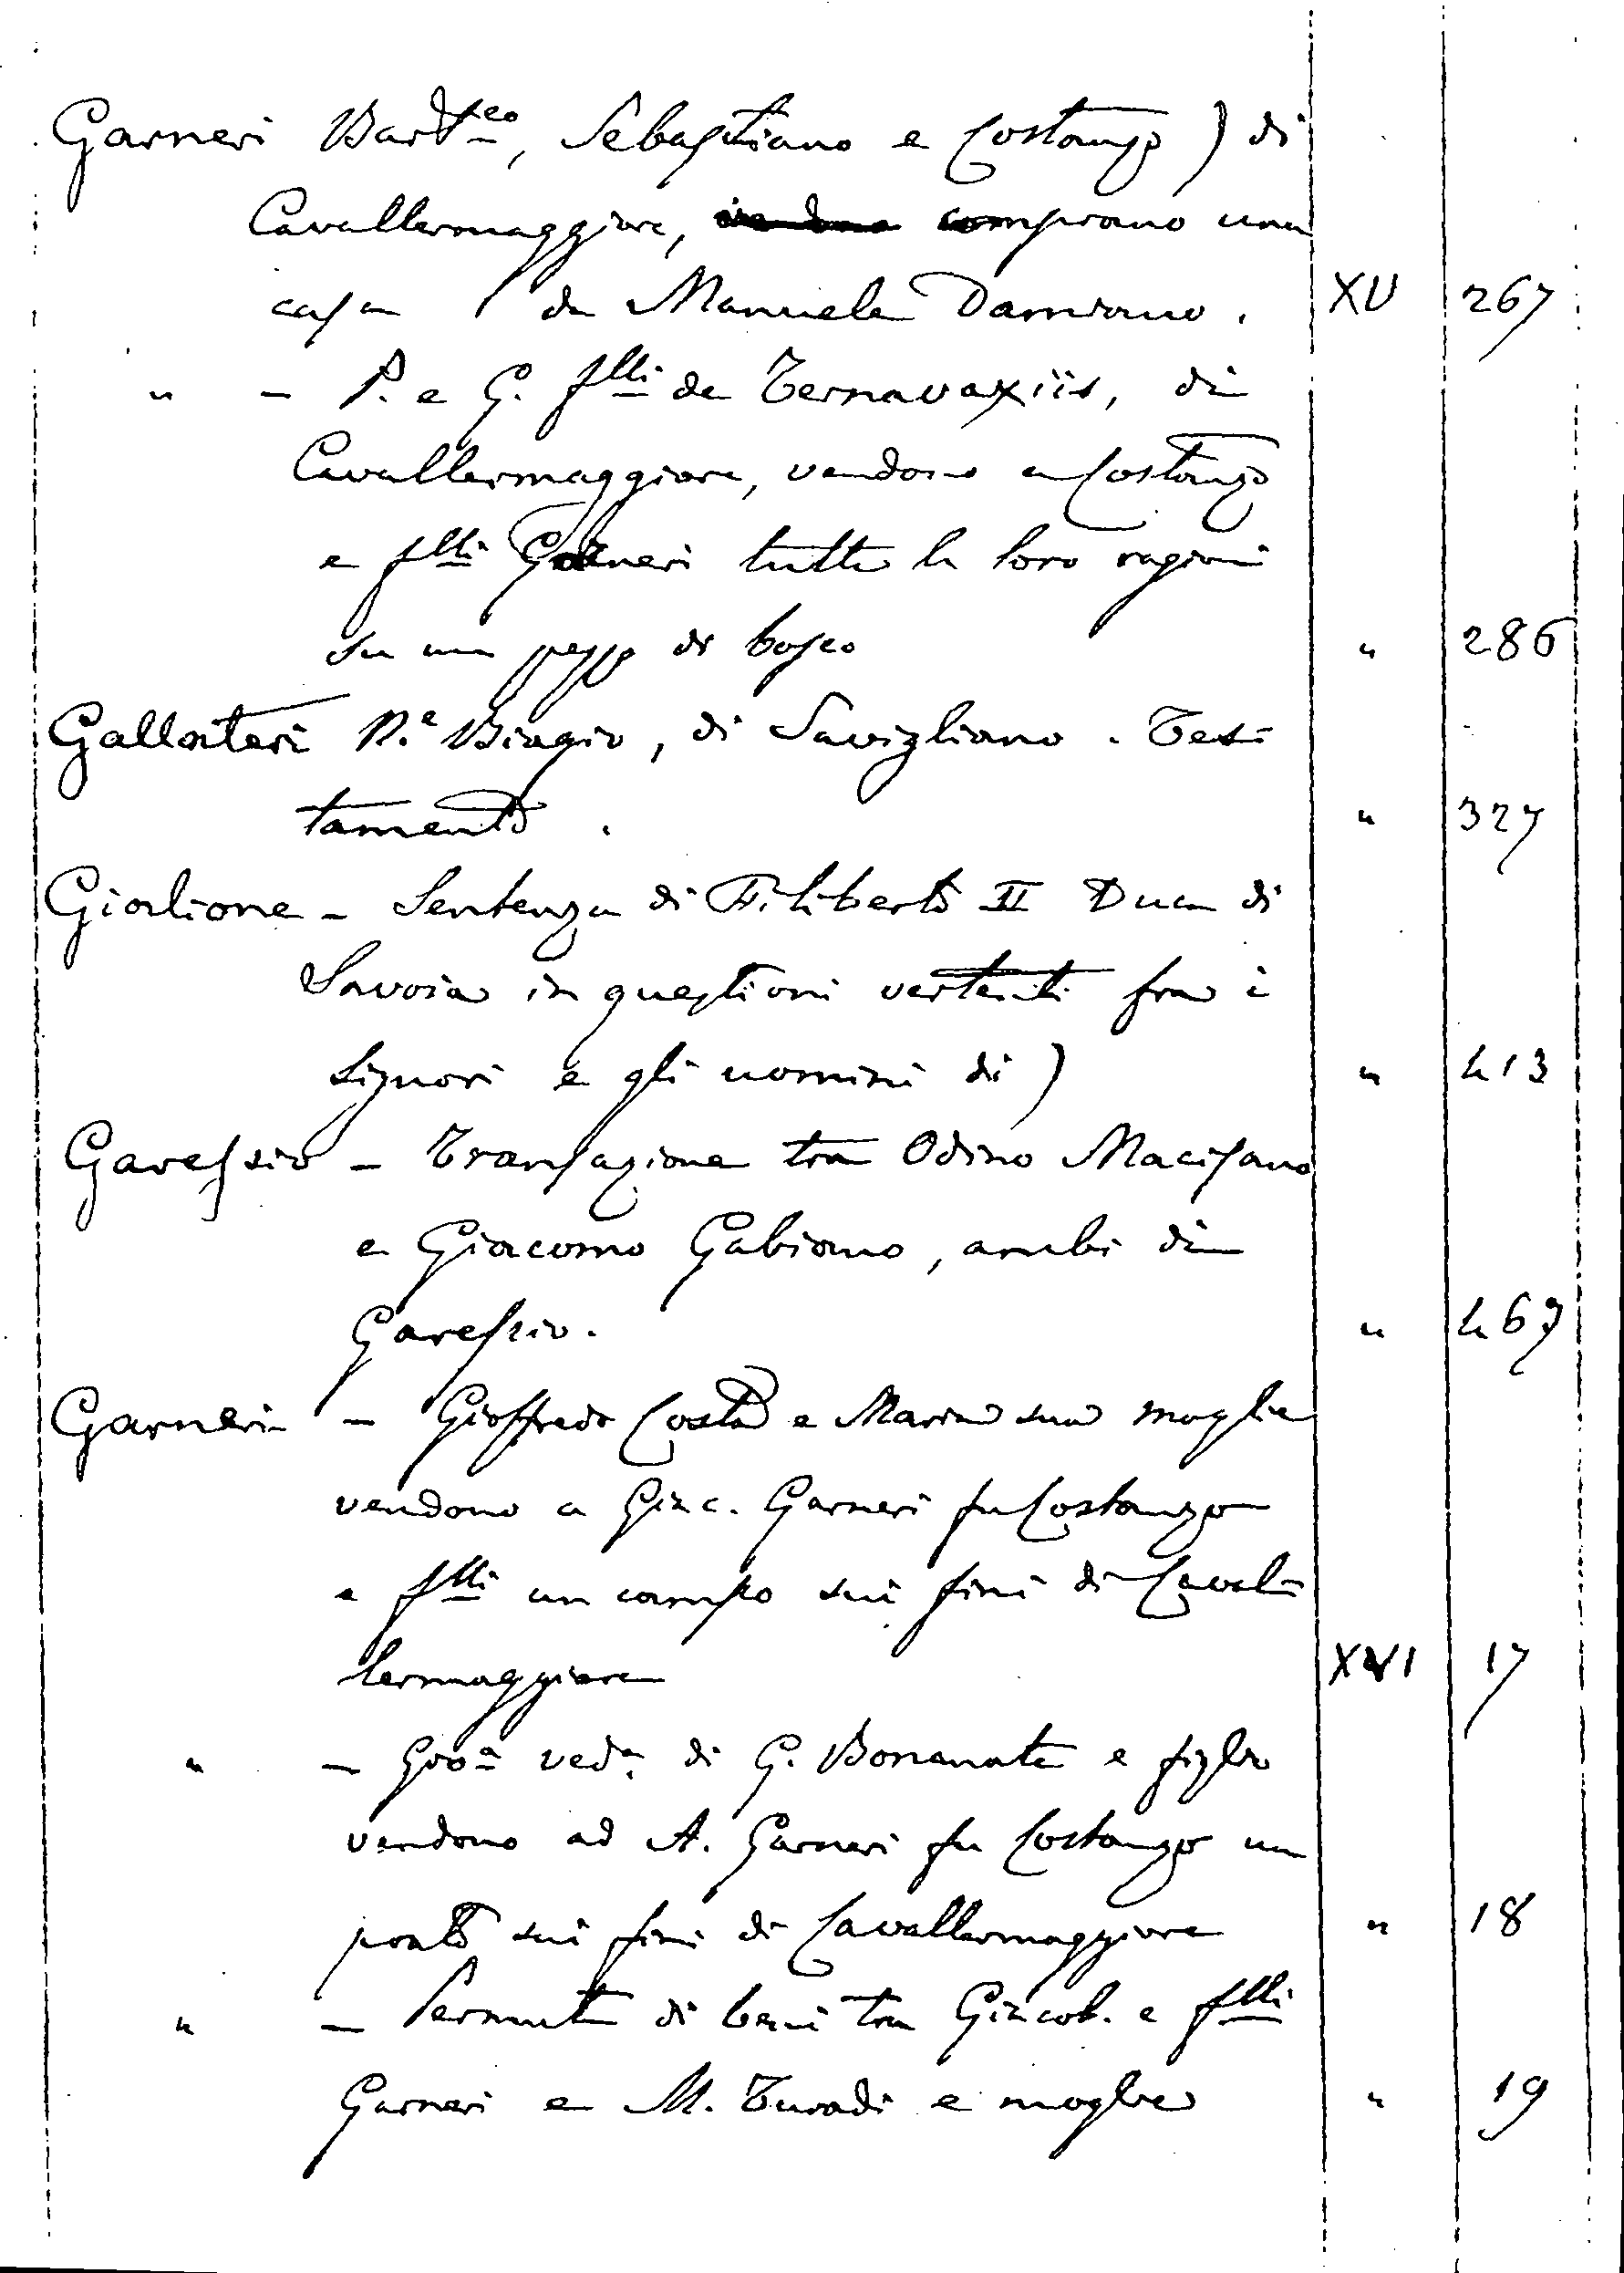 Garneri Bart.eo, Sebastiano e Costanzo) di
Cavallermaggiore, comprano una
casa da Manuele Damiano. XV 267
" - P. e G. f.lli de Ternavaxiis, di
Cavallermaggiore, vendono a Costanzo
e f.lli Garneri tutte le loro ragioni
su un pezzo di bosco " 286
Gallateri N.e Biagio, di Savigliano. Tes-
tamento. " 327
Gialione - Sentenza di Filiberto II Duca di
Savoia in questioni vertenti fra i
signori e gli uomini di) " 413
Garessio - Transazione tra Odino Macisano
e Giacomo Gabiano, ambi di
Garessio. " 467
Garneri - Gioffredo Costa e Maria sua moglie
vendono a Giac. Garneri fu Costanzo
e f.lli un campo sui fini di Caval-
lermaggiore XVI 17
" - Gio.a ved.a di G. Bonanate e figlio
vendono ad A. Garneri fu Costanzo un
prato sui fini di Cavallermaggiore " 18
" - Permuta di beni tra Giacob. e f.lli
Garneri e M. Turadi e moglie " 19